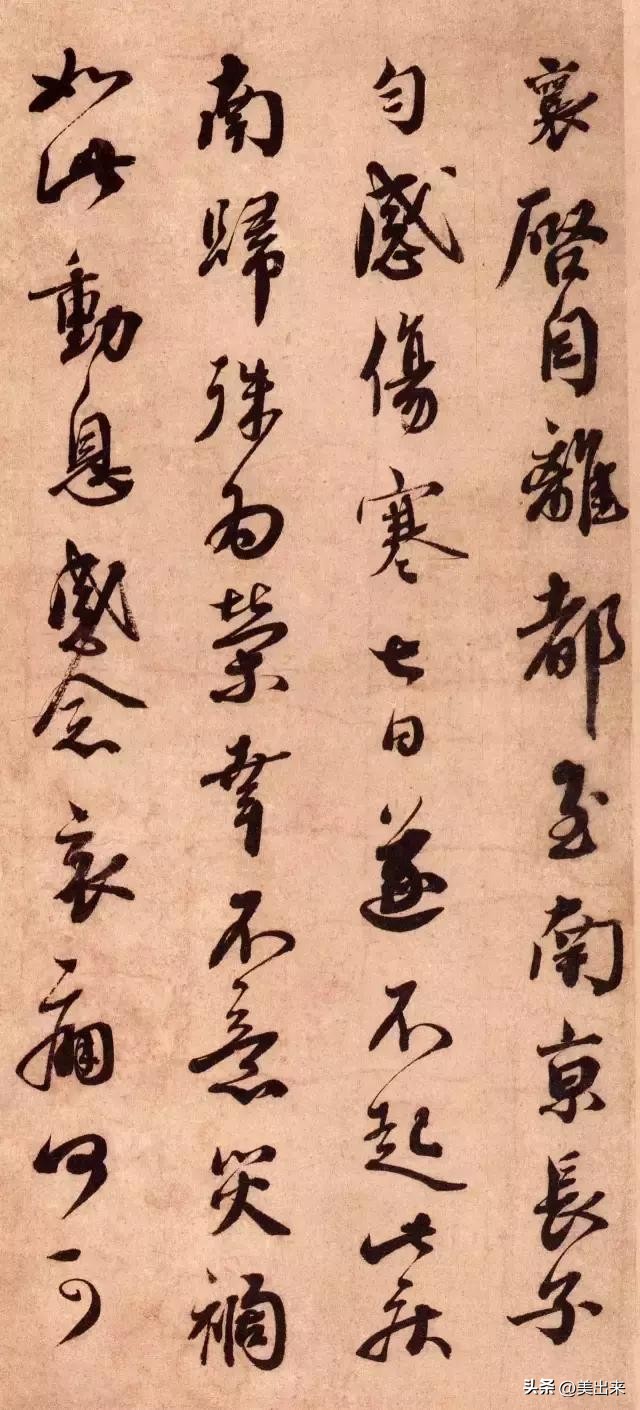 襄啓自離都至南京長子
勻感傷寒七日遂不起此疾
南歸殊為榮幸不意災禍
如此動息感念哀痛何可
头条 @美出来